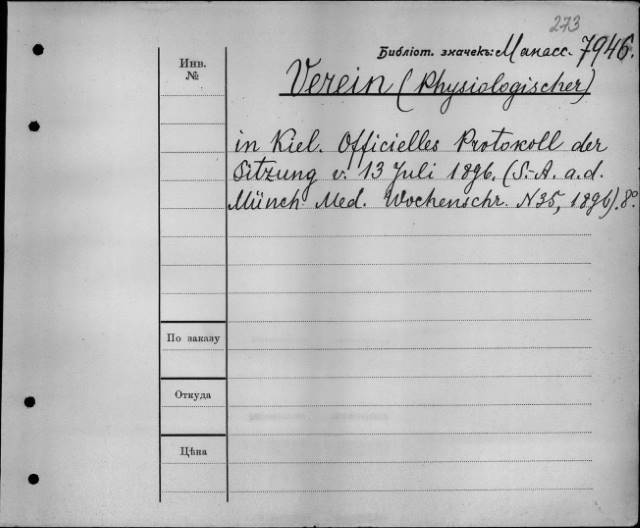 273
Библіот. значекъ: Манасс. 7946.
Инв.
№
Verein (Physiologischer)
in Kiel. Officielles Protokoll der
Sitzung v. 13 Juli 1896. (S.-A. a. d.
Münch. Med. Wochenschr. N35, 1896). 8°.
По заказу
Откуда
Цѣна